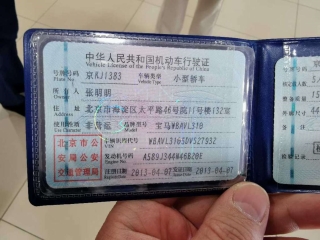 中华人民共和国机动车行驶证
Vehicle License of the People's Republic of China
号牌号码 京KJ1383 车辆类型 小型轿车
Plate No. Vehicle Type
所有人 张明明
Owner
住址 北京市海淀区太平路46号院11号楼132室
Address
使用性质 非营运 品牌型号 宝马WBAVL310
Use Character Model
北京市公
安局公安
交通管理局
车辆识别代号
VIN
发动机号码
Engine No.
注册日期 2013-04-07 发证日期 2013-04-07
Register Date Issue Date